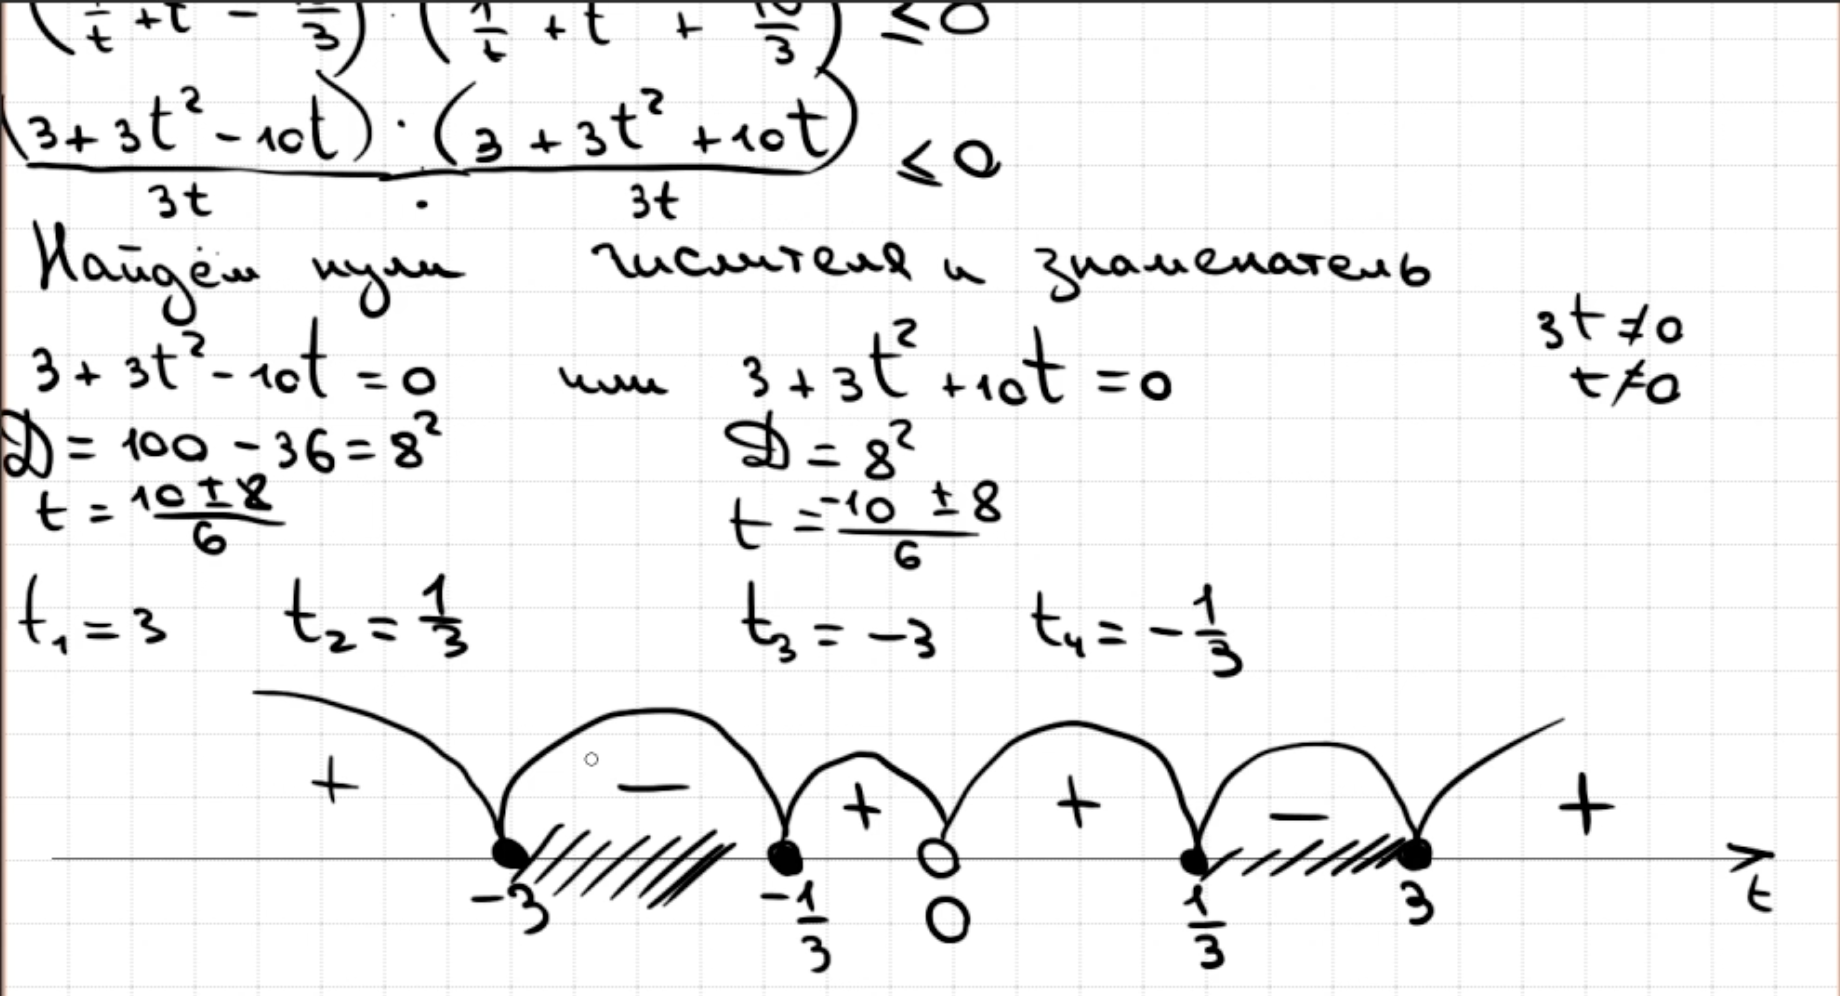 (1/t + t - 10/3) · (1/t + t + 10/3) ≤ 0
(3 + 3t² - 10t) · (3 + 3t² + 10t) ≤ 0
3t · 3t
Найдём нули числителя и знаменатель
3t ≠ 0
3 + 3t² - 10t = 0 или 3 + 3t² + 10t = 0 t ≠ 0
D = 100 - 36 = 8² D = 8²
t = (10 ± 8)/6 t = (-10 ± 8)/6
t₁ = 3 t₂ = 1/3 t₃ = -3 t₄ = -1/3
+ - + + - +
-3 -1/3 0 1/3 3 t